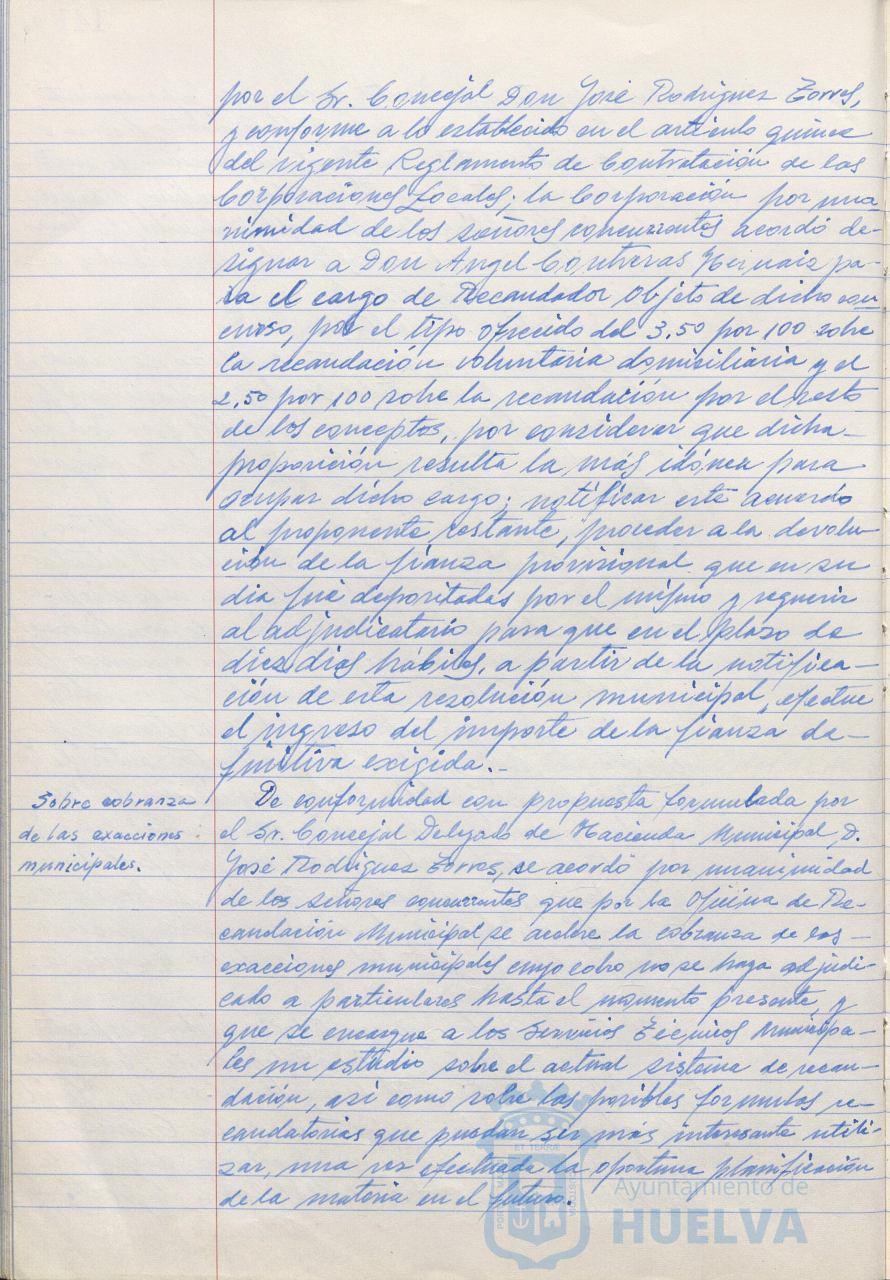 por el Sr. Concejal Don José Rodríguez Torres,
y conforme a lo establecido en el artículo quince
del vigente Reglamento de Contratación de las
Corporaciones Locales; la Corporación por una-
nimidad de los señores concurrentes acordó de-
signar a Don Angel Contreras Hernaiz pa-
ra el cargo de Recaudador objeto de dicho con-
curso, por el tipo ofrecido del 3,50 por 100 sobre
la recaudación voluntaria domiciliaria y el
2,50 por 100 sobre la recaudación por el resto
de los conceptos, por considerar que dicha
proposición resulta la más idónea para
ocupar dicho cargo; notificar este acuerdo
al proponente restante, proceder a la devolu-
ción de la fianza provisional que en su
dia fué depositadas por el mismo y requerir
al adjudicatario para que en el plazo de
diez dias hábiles, a partir de la notifica-
ción de esta resolución municipal, efectue
el ingreso del importe de la fianza de-
finitiva exigida.-
Sobre cobranza
de las exacciones
municipales.
De conformidad con propuesta formulada por
el Sr. Concejal Delegado de Hacienda Municipal, D.
José Rodríguez Torres, se acordó por unanimidad
de los señores concurrentes que por la Oficina de Re-
caudación Municipal se acelere la cobranza de las
exacciones municipales cuyo cobro no se haya adjudi-
cado a particulares hasta el momento presente, y
que se encargue a los Servicios Técnicos Municipa-
les un estudio sobre el actual sistema de recau-
dación, así como sobre las posibles formulas re-
caudatorias que puedan ser más interesante utili-
zar, una vez efectuada la oportuna planificación
de la materia en el futuro.
Ayuntamiento de
HUELVA